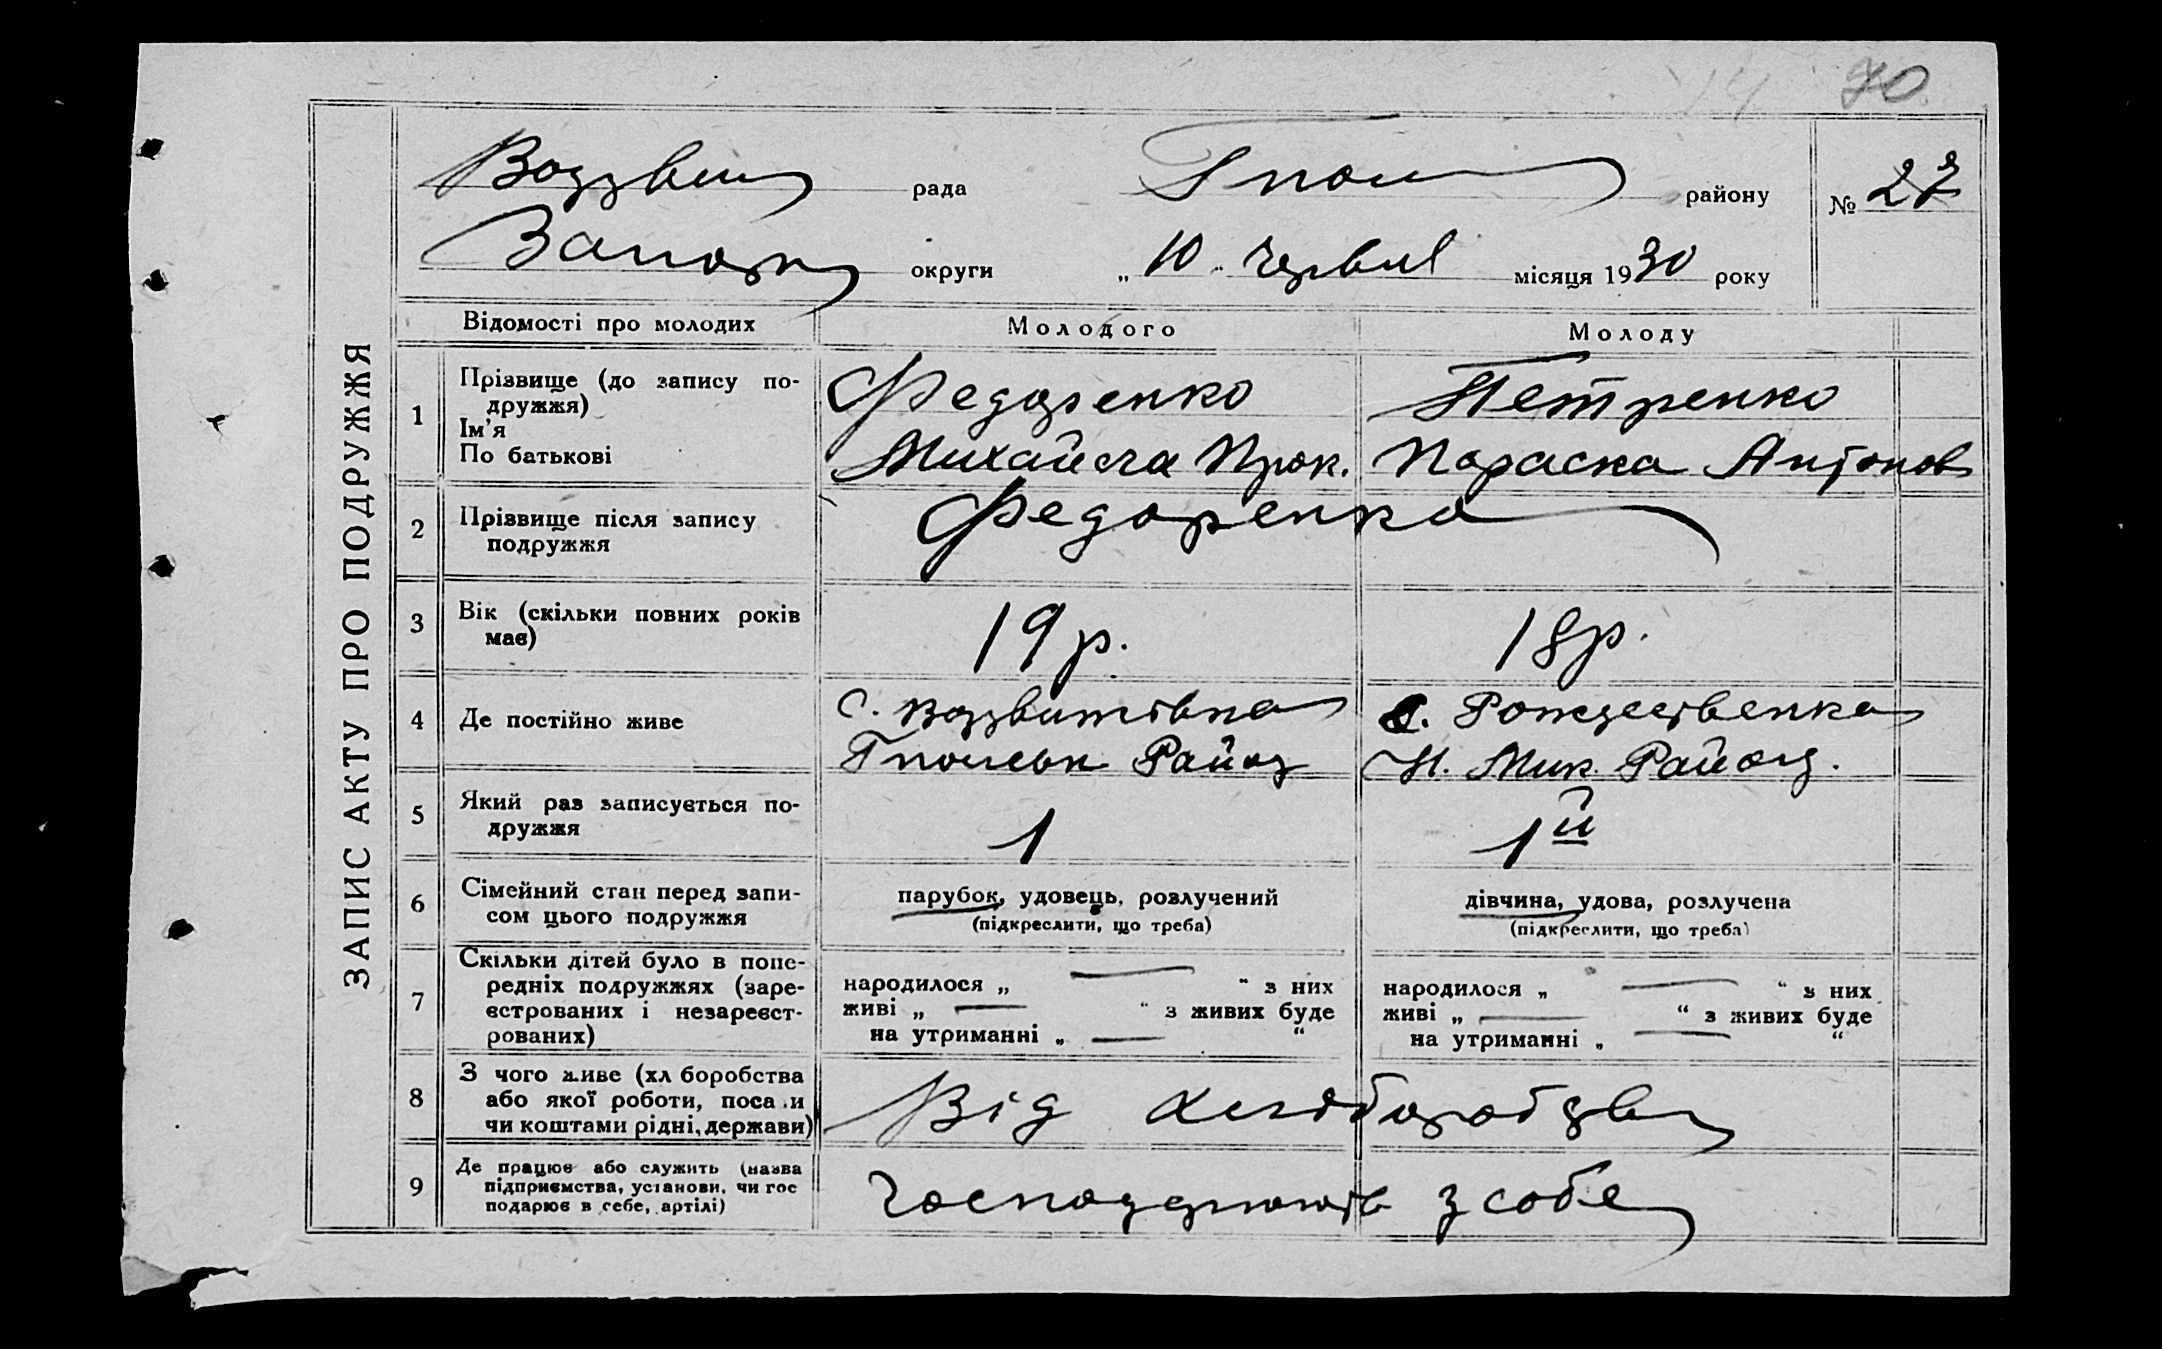 14 70
Воздвиж рада Гполь району № 27
Запоріж округи „10" червня місяця 1930 року
ЗАПИС АКТУ ПРО ПОДРУЖЖЯ
Відомості про молодих Молодого Молоду
1 Прізвище (до запису по-
дружжя)
Ім'я
По батькові
Федоренко
Михайла Прок.
Петренко
Параска Антонов
2 Прізвище після запису
подружжя
Федоренко
3 Вік (скільки повних років
має)
19 р.
18 р.
4 Де постійно живе
с. Воздвижівка
Гпольськ Район
с. Рождественка
Н. Мик. Район.
5 Який раз записується по-
дружжя
1
1й
6 Сімейний стан перед запи-
сом цього подружжя
парубок, удовець, розлучений
(підкреслити, що треба)
дівчина, удова, розлучена
(підкреслити, що треба)
7 Скільки дітей було в попе-
редніх подружжях (заре-
єстрованих і незареєст-
рованих)
народилося „ — " з них
живі „ — " з живих буде
на утриманні „ — "
народилося „ — " з них
живі „ — " з живих буде
на утриманні „ — "
8 З чого живе (хл боробства
або якої роботи, поса и
чи коштами рідні, держави)
Від хліборобства
9 Де працює або служить (назва
підприємства, установи, чи гос
подарює в себе, артілі)
Господарюють з собе